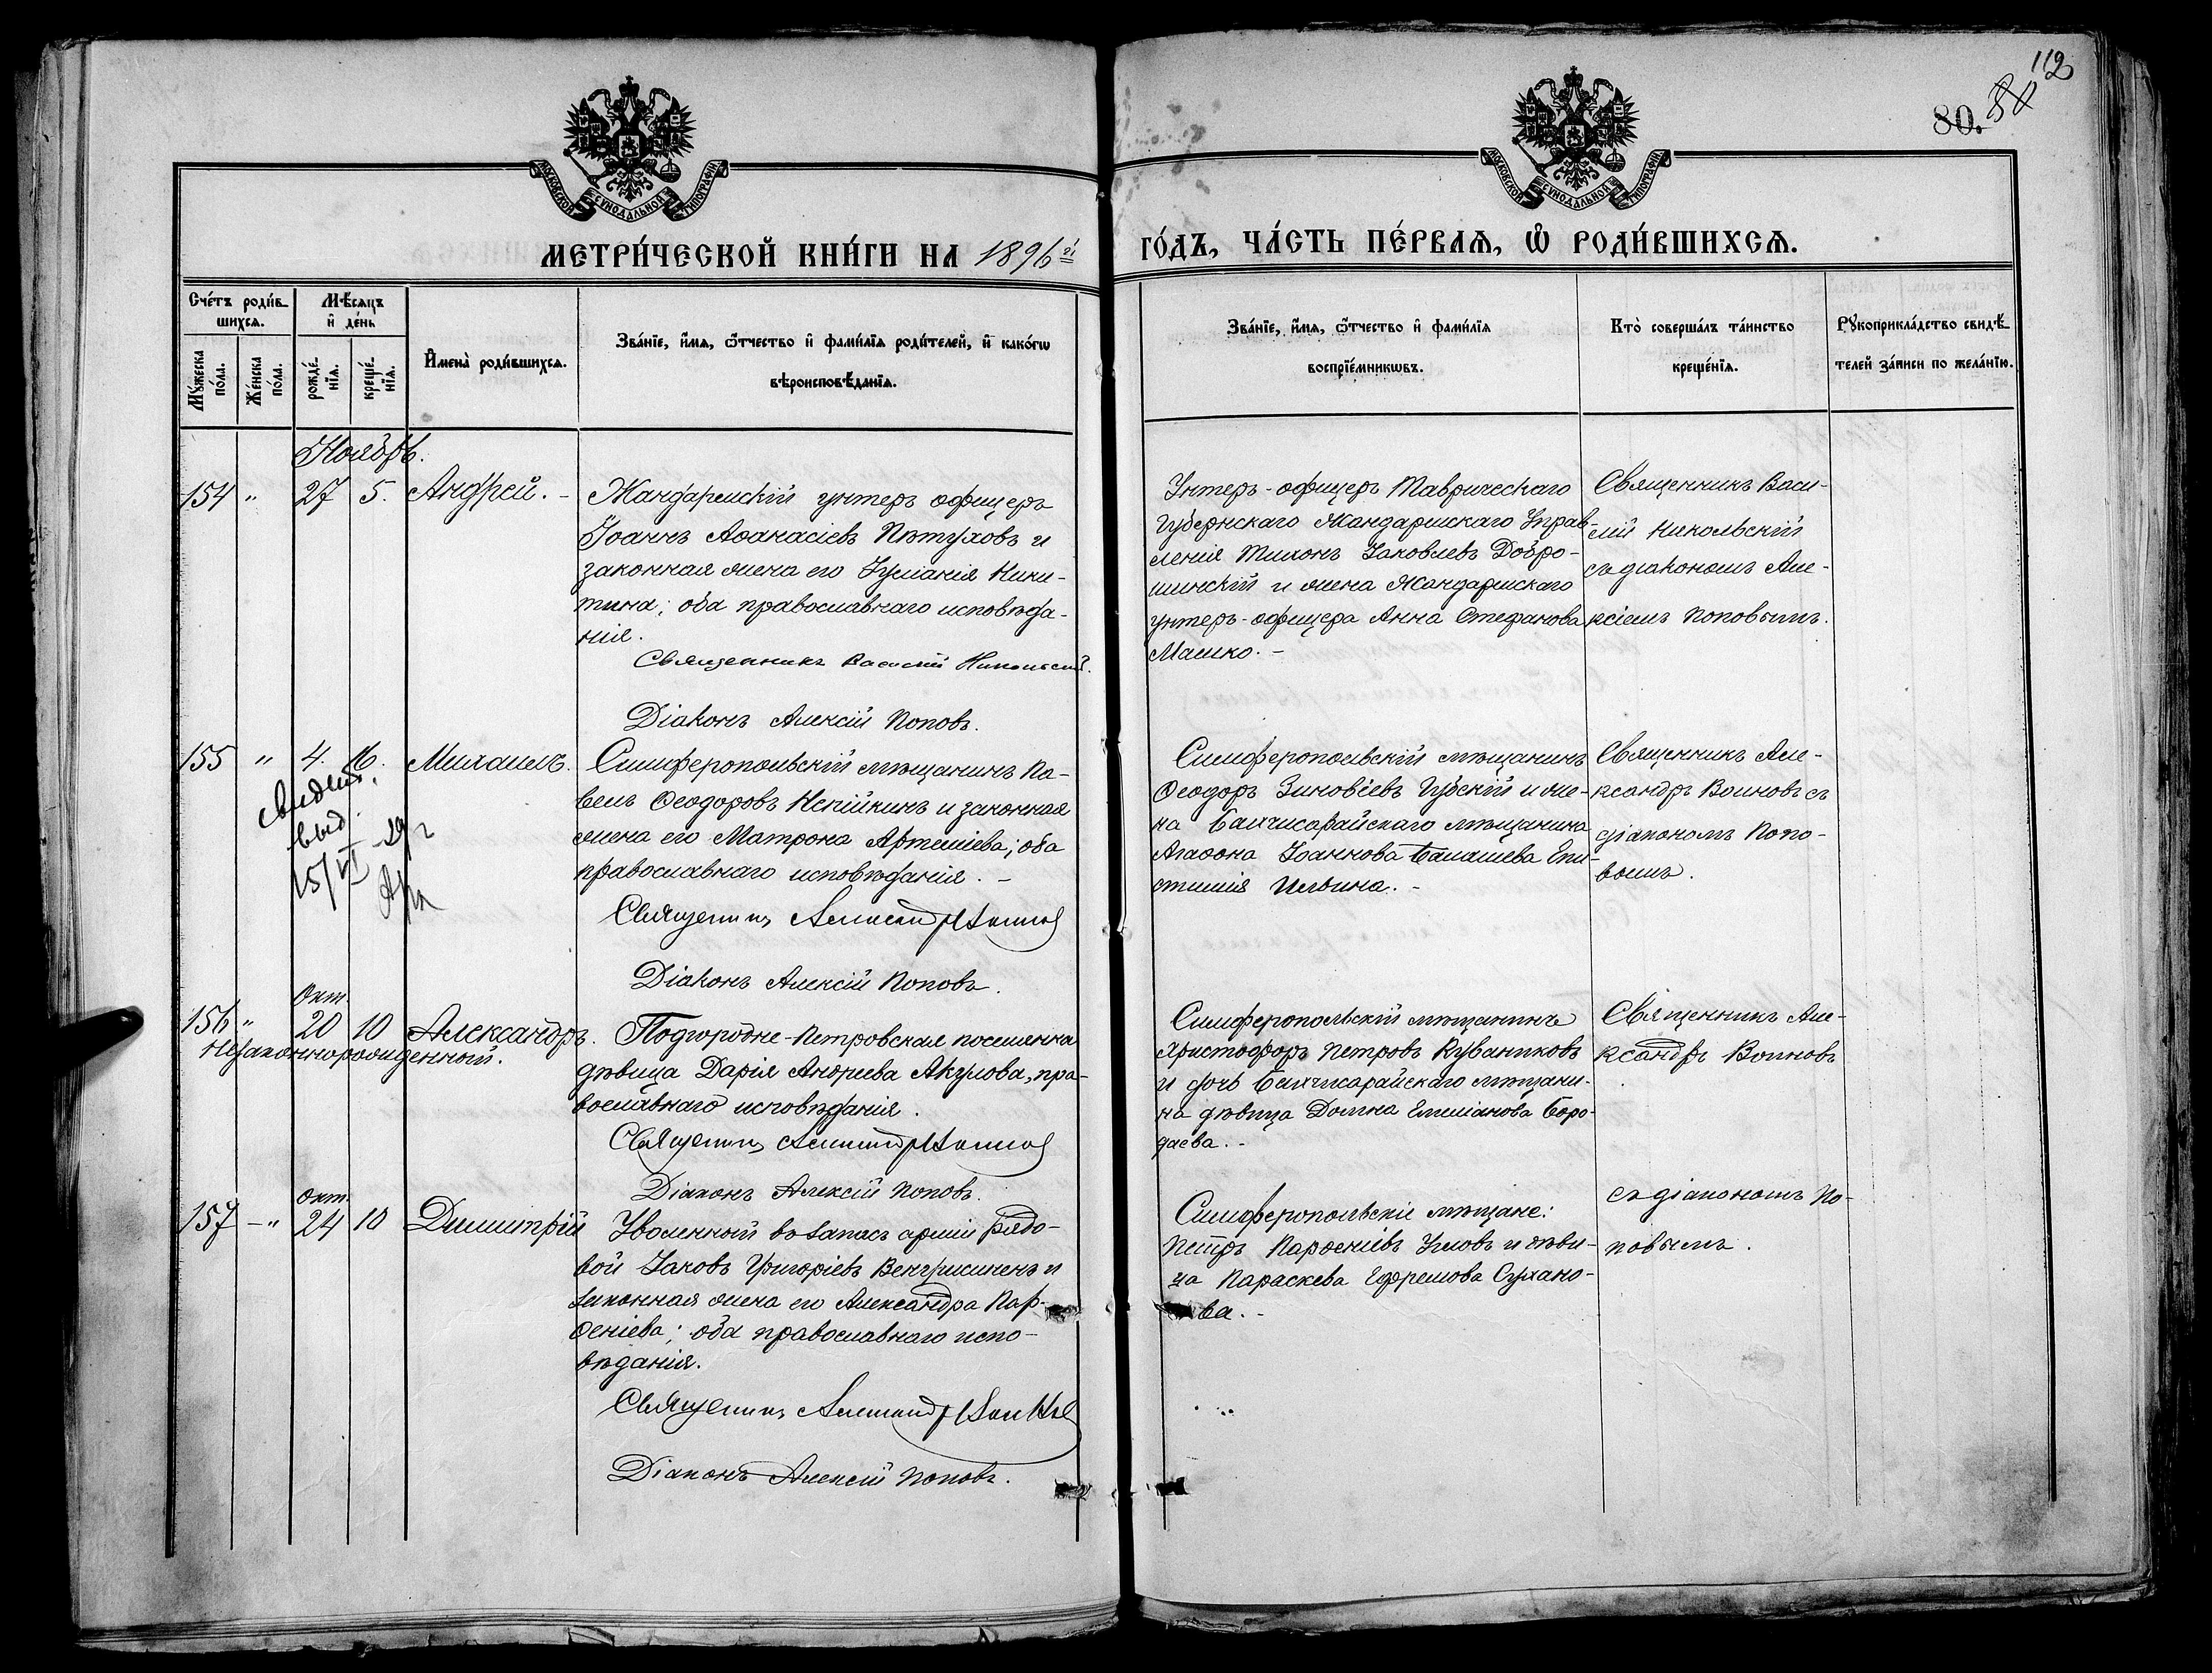 112
80. 80
МОСКОВСКОЙ СУНОДАЛЬНОЙ ТИПОГРАФІИ
МОСКОВСКОЙ СУНОДАЛЬНОЙ ТИПОГРАФІИ
МЕТРИ́ЧЕСКОЙ КНИ́ГИ НА 1896й
ГО́ДЪ, ЧА́СТЬ ПЕ́РВАѦ, Ѡ҆ РОДИ́ВШИХСѦ.
Сче́тъ роди́в-
шихсѧ.
Мꙋ́жеска по́ла.
Же́нска по́ла.
Мѣ́сѧцъ
и҆ де́нь
рожде́-нїѧ.
креще́-нїѧ.
И҆мена̀ роди́вшихсѧ.
Зва́нїе, и҆́мѧ, ѻ҆́тчество и҆ фами́лїѧ роди́телей, и҆ како́гѡ
вѣроисповѣ́данїѧ.
Зва́нїе, и҆́мѧ, ѻ҆́тчество и҆ фами́лїѧ
воспрїе́мникѡвъ.
Кто̀ соверша́лъ та́инство
креще́нїѧ.
Рꙋкоприкла́дство свидѣ́-
телей за́писи по жела́нїю.
Ноябрь.
154 " 27 5. Андрей. -
Жандармскій унтеръ офицеръ
Іоаннъ Аѳанасіевъ Пѣтуховъ и
законная жена его Іуліанія Ники-
тина; оба православнаго исповѣда-
нія.
Священникъ Василій Никольскій.
Діаконъ Алексій Поповъ.
Унтеръ-офицеръ Таврическаго
Губернскаго Жандармскаго Управ-
ленія Тихонъ Іаковлевъ Добро-
шинскій и жена Жандармскаго
унтеръ-офицера Анна Стефанова
Машко. -
Священникъ Васи-
лій Никольскій
съ діакономъ Але-
ксіемъ Поповымъ.
155 " 4. 16. Михаилъ.
свидет.
выд.
15/VI-29 г
Симферопольскій мѣщанинъ Па-
велъ Ѳеодоровъ Непійкинъ и законная
жена его Матрона Артеміева; оба
православнаго исповѣданія. -
Священникъ Александръ Воиновъ
Діаконъ Алексій Поповъ.
Симферопольскій мѣщанинъ
Ѳеодоръ Зиновіевъ Губскій и же-
на Бахчисарайскаго мѣщанина
Агаѳона Іоаннова Балашева Епи-
стимія Ильина. -
Священникъ Але-
ксандръ Воиновъ съ
діакономъ Попо-
вымъ.
Окт.
156 " 20 10 Александръ.
Незаконнорожденный.
Подгородне-Петровская поселянка
дѣвица Дарія Андреева Акулова, пра-
вославнаго исповѣданія.
Священникъ Александръ Воиновъ
Діаконъ Алексій Поповъ.
Симферопольскій мѣщанинъ
Христофоръ Петровъ Кубанниковъ
и дочь Бахчисарайскаго мѣщани-
на дѣвица Домна Емиліанова Боро-
даева. -
Священникъ Але-
ксандръ Воиновъ
съ діакономъ По-
повымъ.
Окт.
157 - " 24 10 Димитрій
Уволенный въ запасъ арміи рядо-
вой Іаковъ Григоріевъ Венгришненъ и
законная жена его Александра Пар-
ѳеніева; оба православнаго испо-
вѣданія.
Священникъ Александръ Воиновъ
Діаконъ Алексій Поповъ.
Симферопольскіе мѣщане:
Петръ Парѳеніевъ Угловъ и дѣви-
ца Параскева Ефремова Сухано-
ва. -